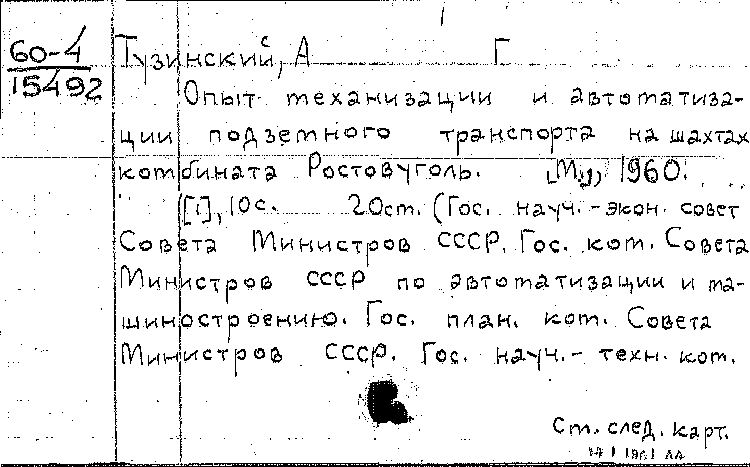 60-4
15492
Тузинский, А Г
Опыт механизации и автоматиза-
ции подземного транспорта на шахтах
комбината Ростовуголь. [М.], 1960.
[1], 10с. 20ст. (Гос. науч.-экон. совет
Совета Министров СССР. Гос. ком. Совета
Министров СССР по автоматизации и ма-
шиностроению. Гос. план. ком. Совета
Министров СССР. Гос. науч.-техн. ком.
Ст. след. карт.